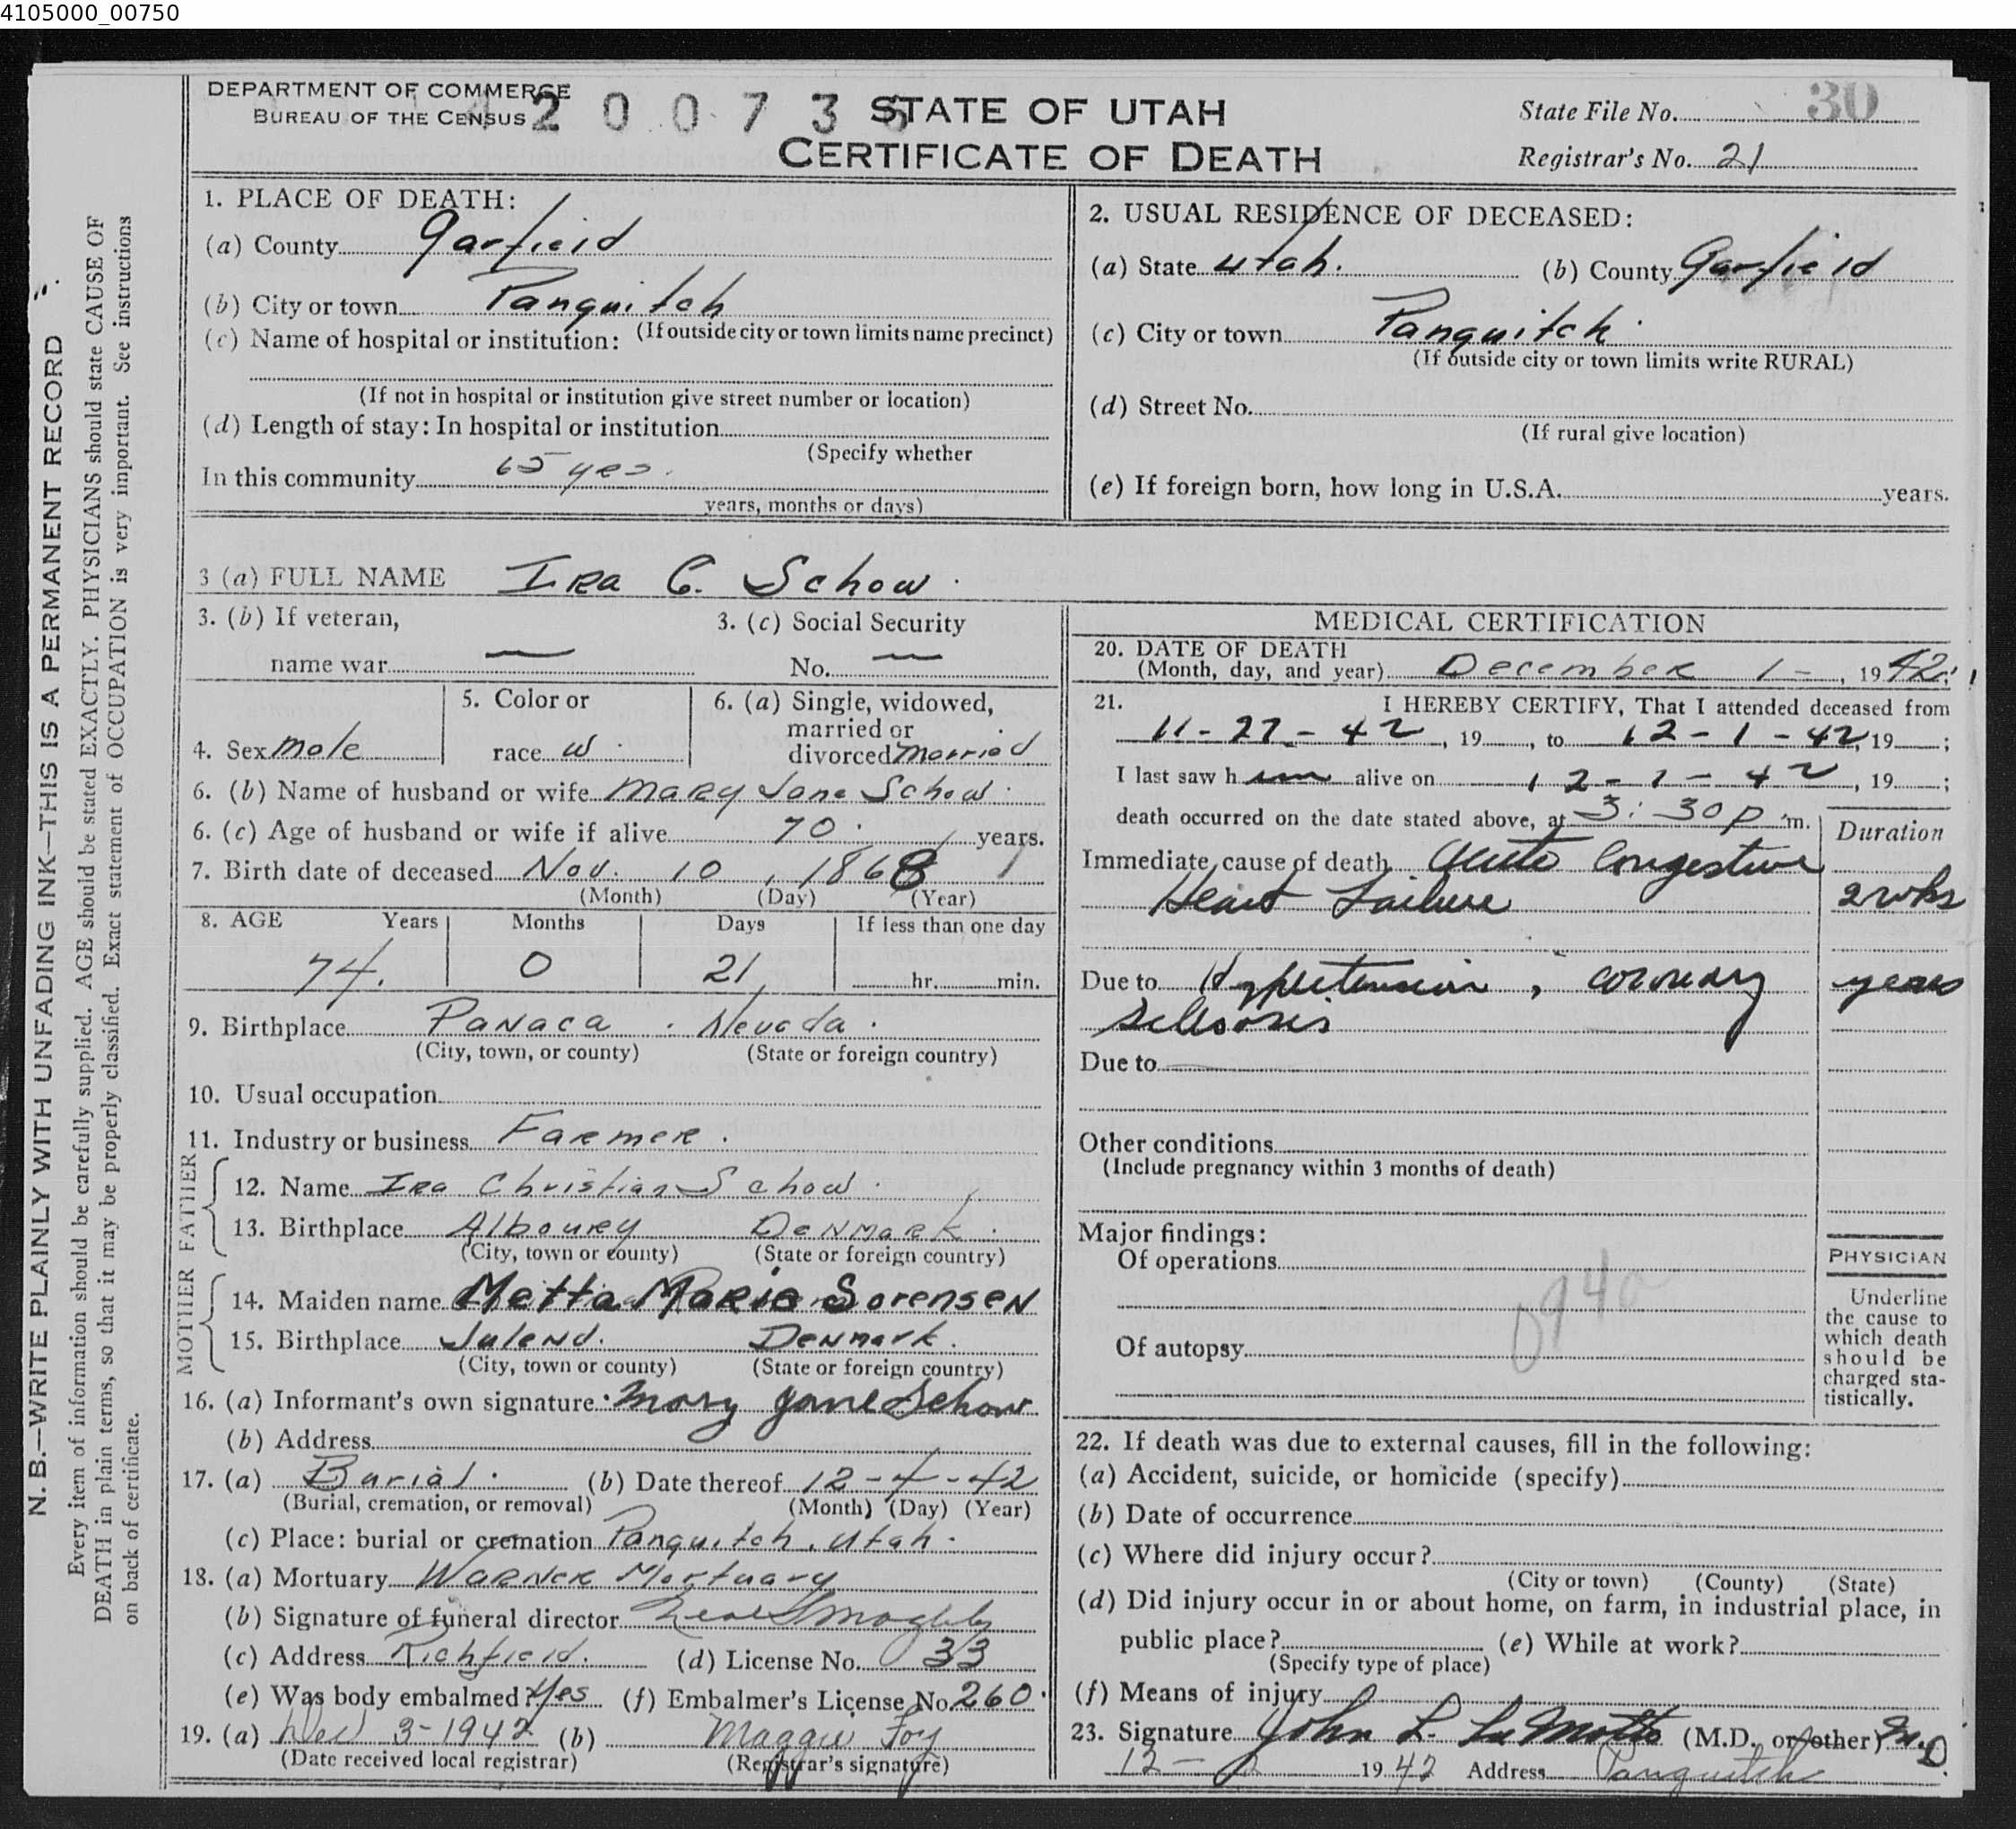 4105000_00750
DEPARTMENT OF COMMERCE
BUREAU OF THE CENSUS
4200736
STATE OF UTAH
CERTIFICATE OF DEATH
State File No. 30
Registrar's No. 21
N. B.—WRITE PLAINLY WITH UNFADING INK—THIS IS A PERMANENT RECORD
Every item of information should be carefully supplied. AGE should be stated EXACTLY. PHYSICIANS should state CAUSE OF
DEATH in plain terms, so that it may be properly classified. Exact statement of OCCUPATION is very important. See instructions
on back of certificate.
1. PLACE OF DEATH:
(a) County Garfield
(b) City or town Panguitch
(If outside city or town limits name precinct)
(c) Name of hospital or institution:
(If not in hospital or institution give street number or location)
(d) Length of stay: In hospital or institution
(Specify whether
In this community 65 yrs.
years, months or days)
2. USUAL RESIDENCE OF DECEASED:
(a) State Utah. (b) County Garfield
(c) City or town Panguitch
(If outside city or town limits write RURAL)
(d) Street No.
(If rural give location)
(e) If foreign born, how long in U.S.A. years.
3 (a) FULL NAME Ira C. Schow
3. (b) If veteran,
name war —
3. (c) Social Security
No. —
4. Sex Male
5. Color or
race W
6. (a) Single, widowed,
married or
divorced Married
6. (b) Name of husband or wife Mary Jane Schow
6. (c) Age of husband or wife if alive 70 years.
7. Birth date of deceased Nov. 10, 1868
(Month) (Day) (Year)
8. AGE Years Months Days If less than one day
74. 0 21 hr. min.
9. Birthplace Panaca . Nevada.
(City, town, or county) (State or foreign country)
10. Usual occupation
11. Industry or business Farmer.
FATHER
12. Name Ira Christian Schow
13. Birthplace Alboury Denmark.
(City, town or county) (State or foreign country)
MOTHER
14. Maiden name Metta Maria Sorensen
15. Birthplace Julend. Denmark.
(City, town or county) (State or foreign country)
16. (a) Informant's own signature Mary Jane Schow
(b) Address
17. (a) Burial. (b) Date thereof 12-4-42
(Burial, cremation, or removal) (Month) (Day) (Year)
(c) Place: burial or cremation Panguitch, Utah.
18. (a) Mortuary Warner Mortuary
(b) Signature of funeral director
(c) Address Richfield. (d) License No. 33
(e) Was body embalmed? Yes (f) Embalmer's License No. 260.
19. (a) Dec 3-1942 (b) Maggie Foy
(Date received local registrar) (Registrar's signature)
MEDICAL CERTIFICATION
20. DATE OF DEATH
(Month, day, and year) December 1-, 1942
21. I HEREBY CERTIFY, That I attended deceased from
11-27-42, 19 , to 12-1-42, 19 ;
I last saw h im alive on 12-1-42, 19 ;
death occurred on the date stated above, at 3:30 p m.
Duration
Immediate cause of death Acute Congestive
Heart Failure 2 wks
Due to Hypertension, coronary years
sclerosis
Due to
Other conditions
(Include pregnancy within 3 months of death)
Major findings:
Of operations
094a
Of autopsy
PHYSICIAN
Underline
the cause to
which death
should be
charged sta-
tistically.
22. If death was due to external causes, fill in the following:
(a) Accident, suicide, or homicide (specify)
(b) Date of occurrence
(c) Where did injury occur?
(City or town) (County) (State)
(d) Did injury occur in or about home, on farm, in industrial place, in
public place? (e) While at work?
(Specify type of place)
(f) Means of injury
23. Signature John L. LaMotte (M.D., or other) M.D.
12- 1942 Address Panguitch